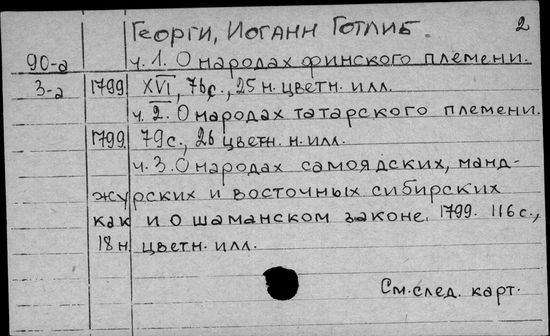 Георги, Иоганн Готлиб. 2
90-а ч. 1. О народах финского племени.
3-а 1799 XVI, 76с., 25 н. цветн. илл.
ч. 2. О народах татарского племени.
1799. 79с., 26 цветн. н. илл.
ч. 3. О народах самоядских, манд-
журских и восточных сибирских
как и о шаманском законе. 1799. 116 с.,
18 н. цветн. илл.
См. след. карт.